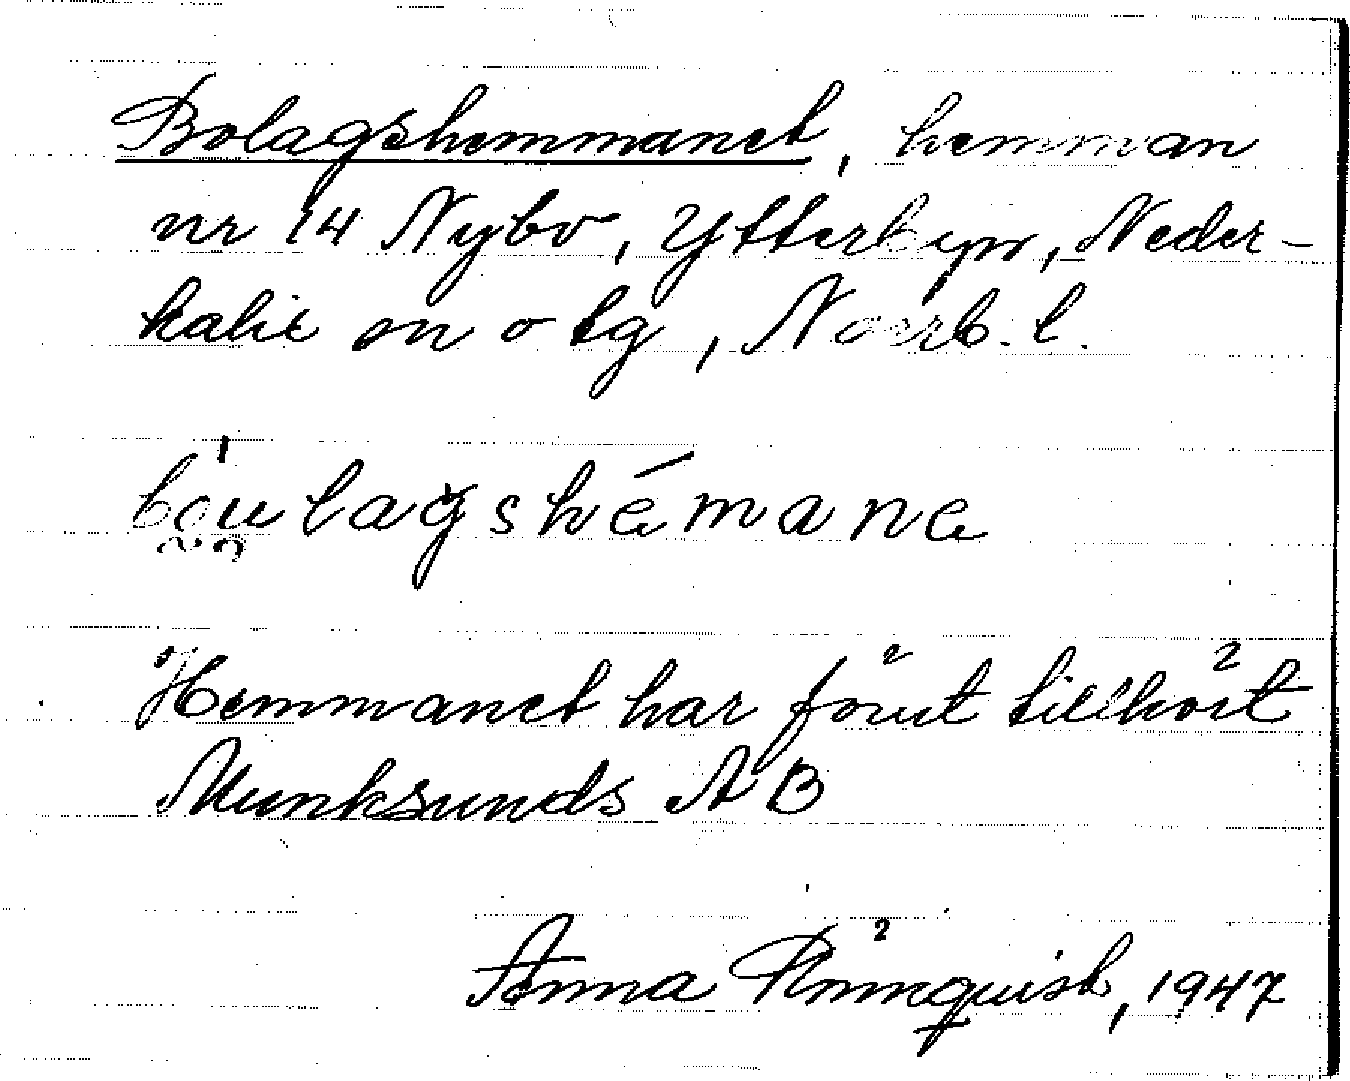 Bolagshemmanet, hemman
nr 14 Nybo, Ytterbyn, Neder-
kalix sn o tg, Norrb. l.
bo̯u̯lagshémane
Hemmanet har förut tillhört
Munksunds AB
Anna Rönnquist, 1947